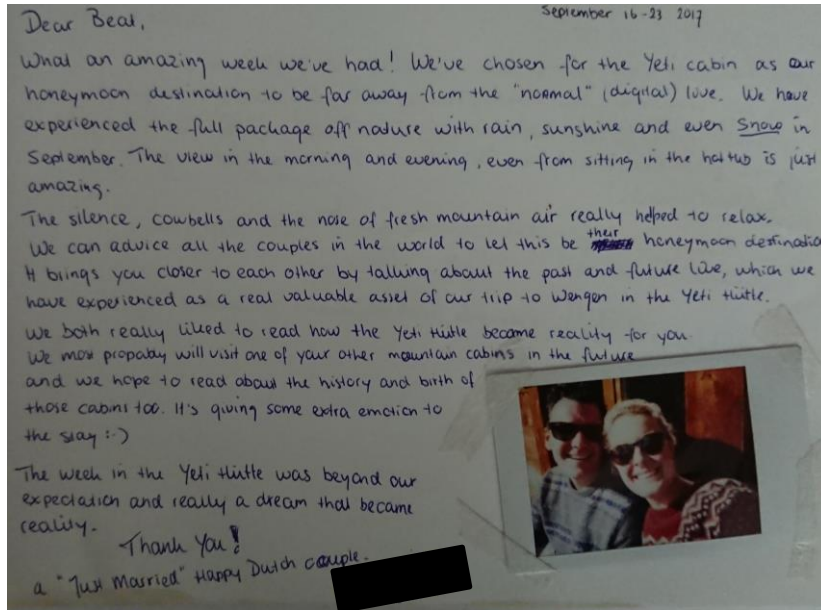 September 16-23 2017
Dear Beat,
What an amazing week we've had! We've chosen for the Yeti cabin as our
honeymoon destination to be far away from the "normal" (digital) live. We have
experienced the full package off nature with rain, sunshine and even Snow in
September. The view in the morning and evening, even from sitting in the hottub is just
amazing.
The silence, cowbells and the nose of fresh mountain air really helped to relax.
We can advice all the couples in the world to let this be their honeymoon destinatio
It brings you closer to each other by talking about the past and future live, which we
have experienced as a real valuable asset of our trip to Wengen in the Yeti Hütte.
We both really liked to read how the Yeti Hütte became reality for you.
We most propably will visit one of your other mountain cabins in the future
and we hope to read about the history and birth of
those cabins too. It's giving some extra emotion to
the stay :-)
The week in the Yeti Hütte was beyond our
expectation and really a dream that became
reality.
Thank You!
a "Just Married" Happy Dutch couple.